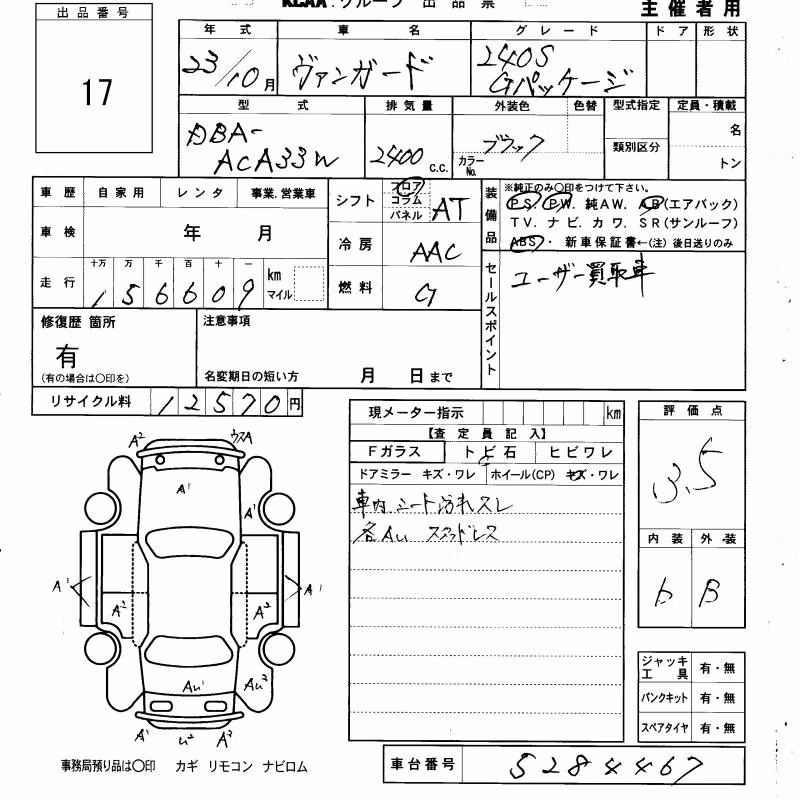 KCAA.グループ 出品票
主催者用
出品番号
17
年式 車名 グレード ドア 形状
23/10月 ヴァンガード 240S
Gパッケージ
型式 排気量 外装色 色替 型式指定 定員・積載
DBA-
ACA33W 2400 C.C. ブラック
カラーNo.
類別区分
名
トン
車歴 自家用 レンタ 事業.営業車
車検 年 月
走行 十万 万 千 百 十 一
1 5 6 6 0 9 km
マイル
シフト フロア
コラム
パネル AT
冷房 AAC
燃料 G
装備品
※純正のみ〇印をつけて下さい。
PS. PW. 純AW. AB(エアバック)
TV. ナビ. カワ. SR(サンルーフ)
ABS・ 新車保証書←(注) 後日送りのみ
セールスポイント
ユーザー買取車
修復歴 箇所
有
(有の場合は〇印を)
注意事項
名変期日の短い方 月 日まで
リサイクル料 12570円
現メーター指示 km
【査定員記入】
Fガラス トビ石 ヒビワレ
ドアミラー キズ・ワレ ホイール(CP) キズ・ワレ
車内シート汚れスレ
各AU スタッドレス
評価点
3.5
内装 外装
b B
A2 ウスA
A1
A1
A1 A1
A2 A2
AU1 AU3
A1 U2 A2
ジャッキ
工具 有・無
パンクキット 有・無
スペアタイヤ 有・無
事務局預り品は〇印 カギ リモコン ナビロム
車台番号 5284467